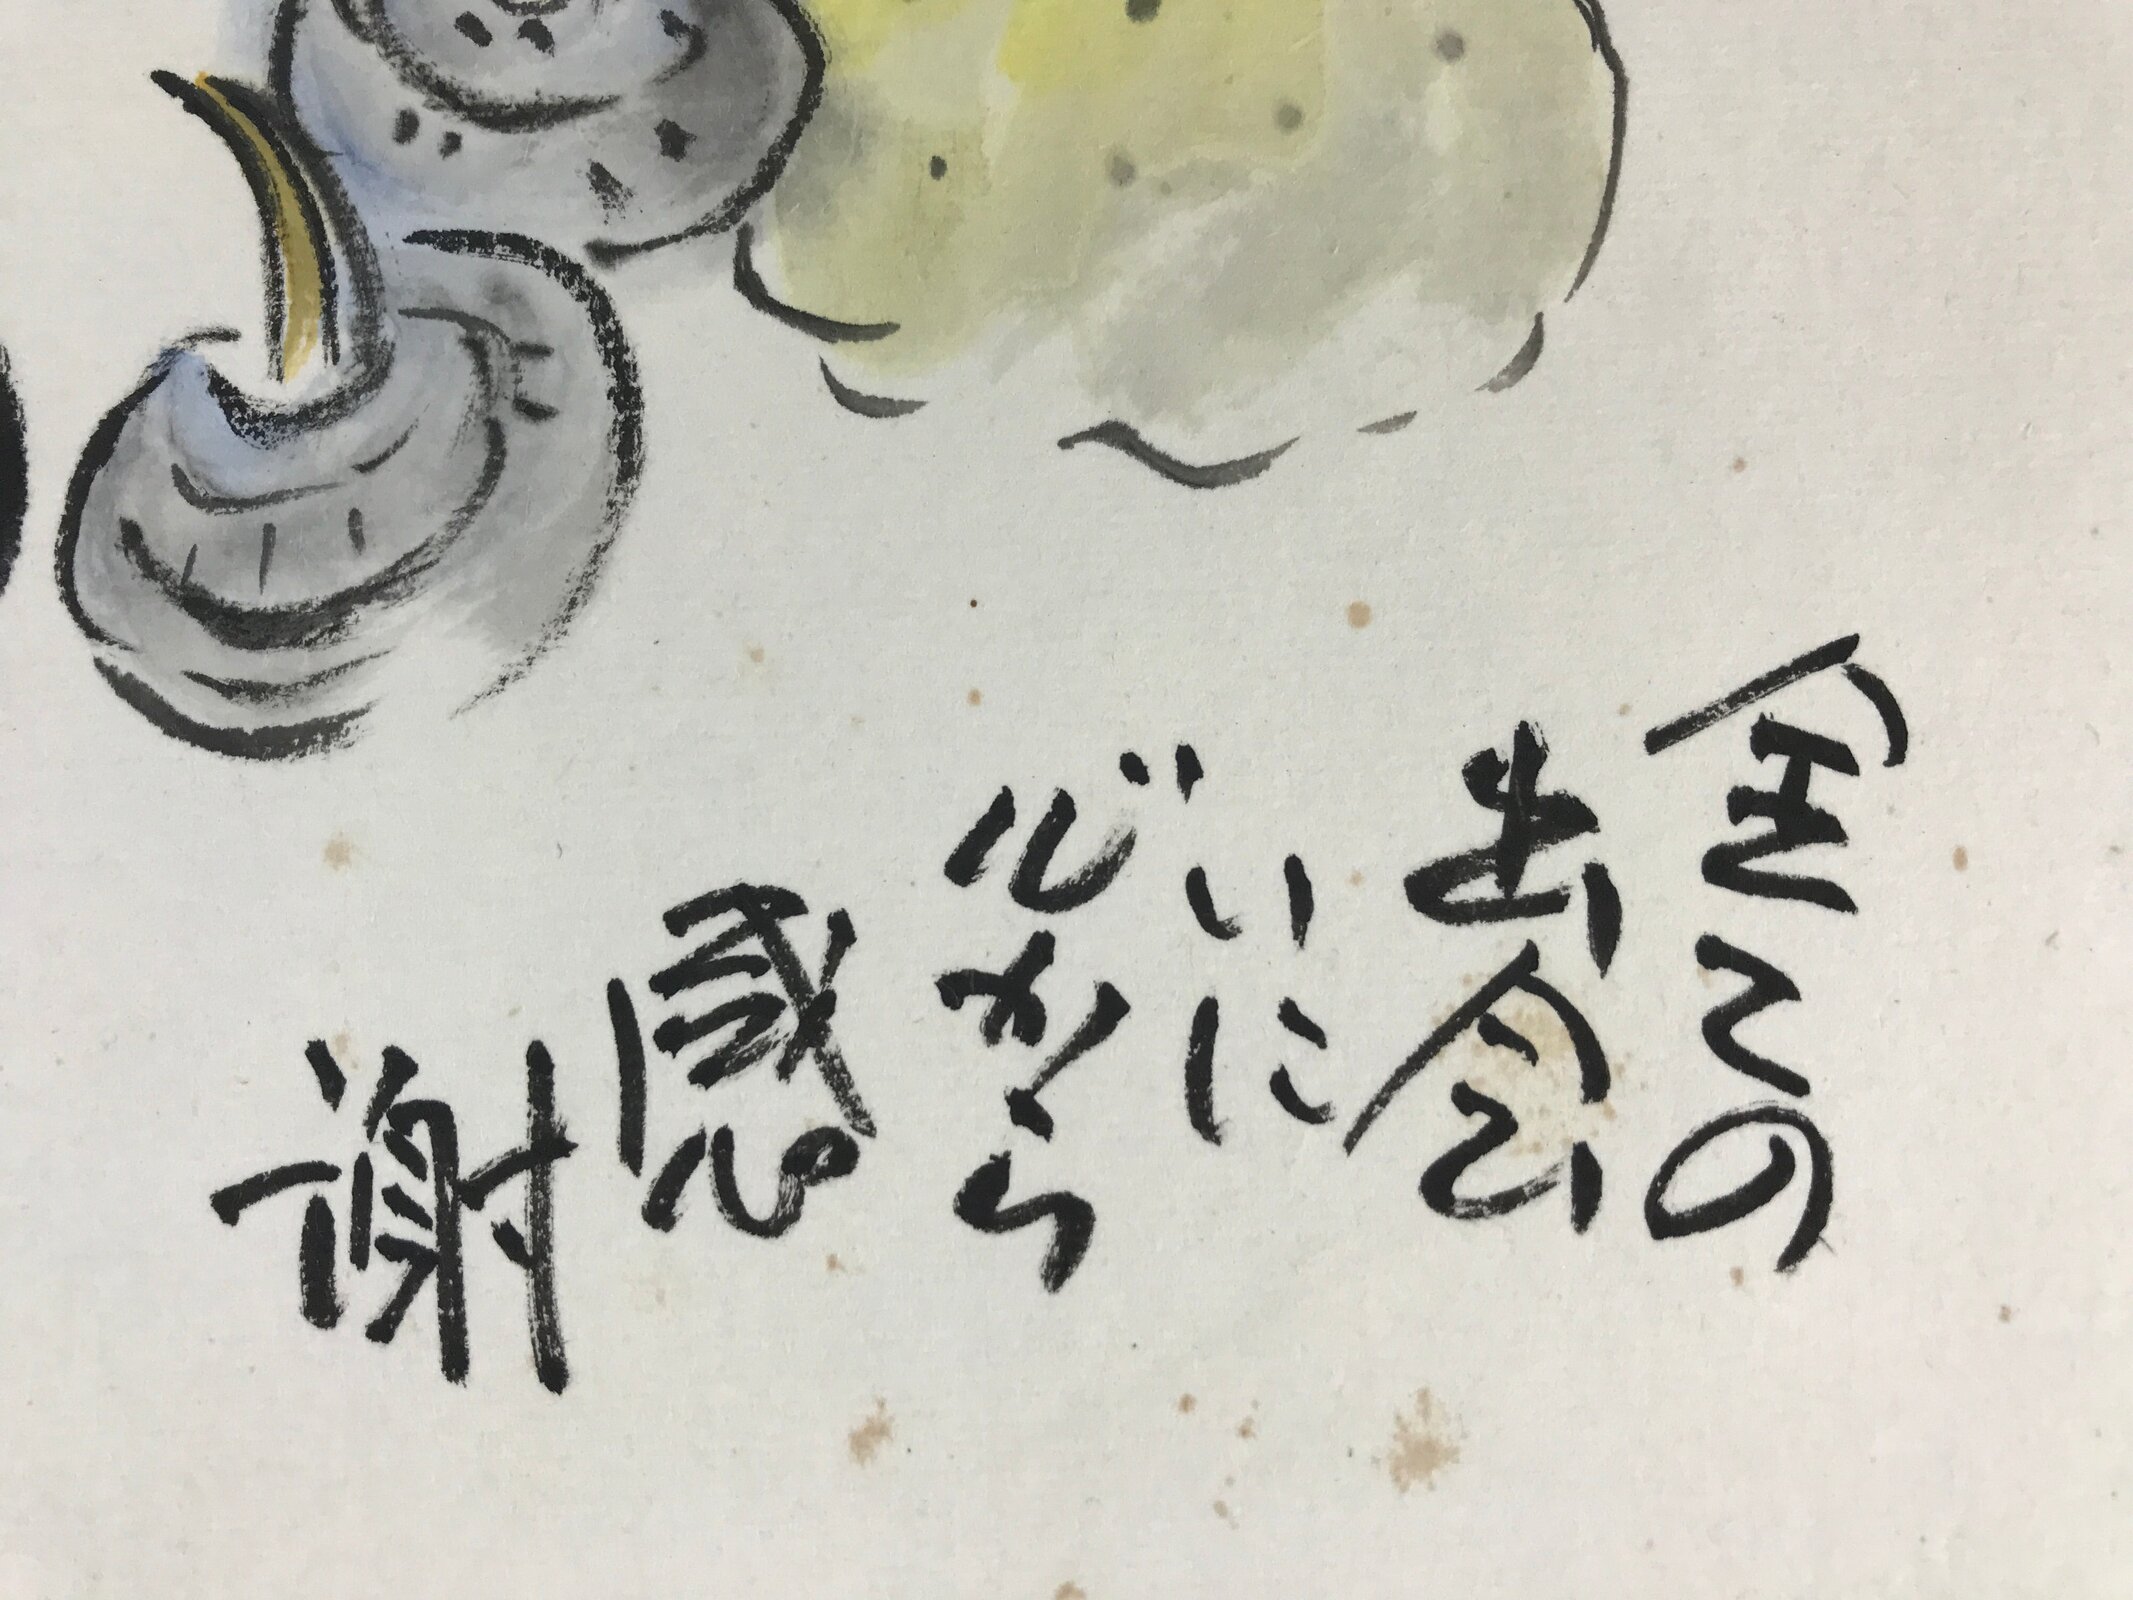 全ての
出会
いに
心から
感
謝